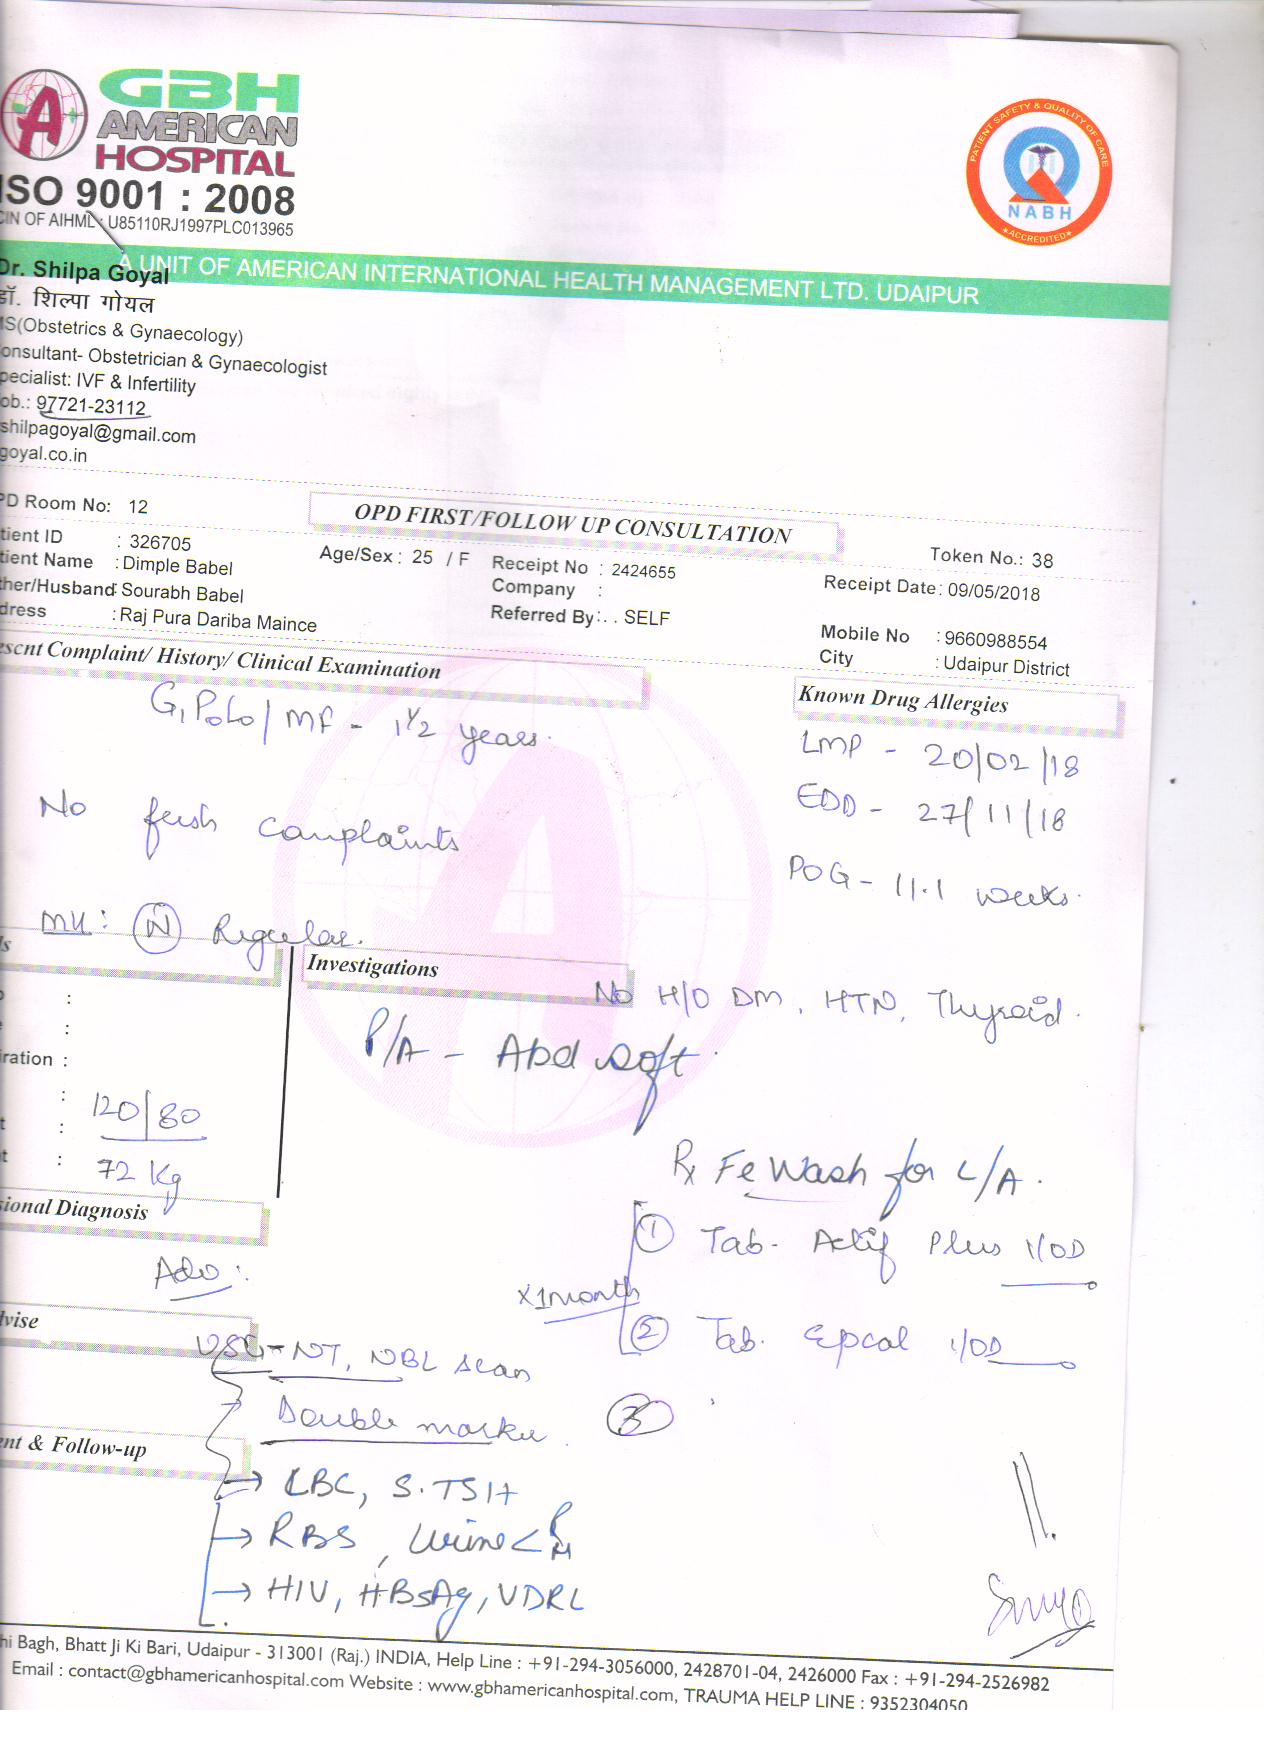 GBH
AMERICAN
HOSPITAL
ISO 9001 : 2008
CIN OF AIHML : U85110RJ1997PLC013965
PATIENT SAFETY & QUALITY OF CARE
NABH
ACCREDITED
A UNIT OF AMERICAN INTERNATIONAL HEALTH MANAGEMENT LTD. UDAIPUR
Dr. Shilpa Goyal
डॉ. शिल्पा गोयल
MS(Obstetrics & Gynaecology)
onsultant- Obstetrician & Gynaecologist
pecialist: IVF & Infertility
ob.: 97721-23112
shilpagoyal@gmail.com
goyal.co.in
PD Room No: 12
OPD FIRST/FOLLOW UP CONSULTATION
Token No.: 38
tient ID : 326705
Age/Sex : 25 / F
Receipt No : 2424655
Receipt Date: 09/05/2018
tient Name : Dimple Babel
Company :
ther/Husband : Sourabh Babel
Referred By : . . SELF
Mobile No : 9660988554
dress : Raj Pura Dariba Maince
City : Udaipur District
esent Complaint/ History/ Clinical Examination
Known Drug Allergies
G1P0L0/ MF - 1 1/2 years.
LMP - 20/02/18
EDD - 27/11/18
No fresh complaints
POG - 11.1 weeks.
MH: N Regular.
ls
Investigations
No H/O DM, HTN, Thyroid.
P/A - Abd soft.
iration :
120/80
72 Kg
Rx Fe Wash for L/A.
sional Diagnosis
1 Tab. Actif Plus 1/OD
Adv:
x 1month
2 Tab. Epcal 1/OD
lvise
USG - NT, NBL scan
Double marker
3
nt & Follow-up
CBC, S.TSH
RBS, Urine < R M
HIV, HBsAg, VDRL
hi Bagh, Bhatt Ji Ki Bari, Udaipur - 313001 (Raj.) INDIA, Help Line : +91-294-3056000, 2428701-04, 2426000 Fax : +91-294-2526982
Email : contact@gbhamericanhospital.com Website : www.gbhamericanhospital.com, TRAUMA HELP LINE : 9352304050